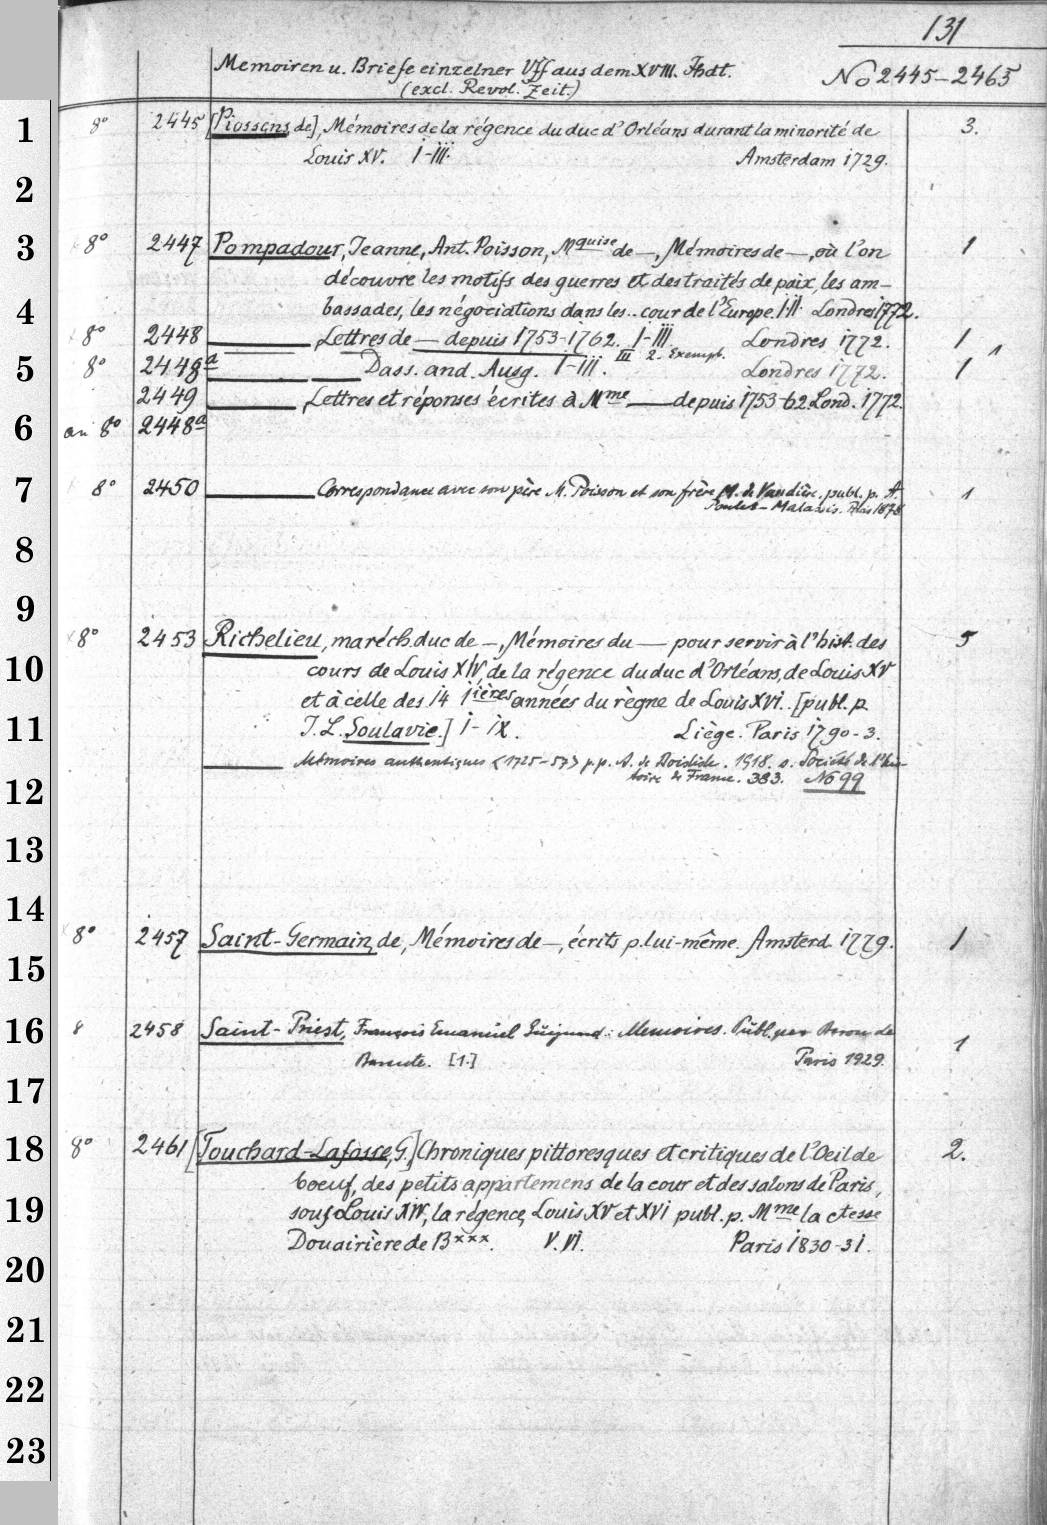 131
Memoiren u. Briefe einzelner Vff aus dem XVIII. Jhdt.
(excl. Revol. Zeit.)
No 2445-2465
1 8° 2445 [Piossens de], Mémoires de la régence du duc d'Orléans durant la minorité de 3.
Louis XV. I-III. Amsterdam 1729.
2
3 8° 2447 Pompadour, Jeanne, Ant. Poisson, Mquise de —, Mémoires de —, où l'on 1
découvre les motifs des guerres et des traités de paix, les am-
4 bassades, les négociations dans les .. cour de l'Europe. I-II. Londres 1772.
8° 2448 ——— Lettres de — depuis 1753-1762. I-III. Londres 1772. 1
III 2. Exempl. 1
5 8° 2448a ——— —— Dass. and. Ausg. I-III. Londres 1772. 1
2449 ——— Lettres et réponses écrites à Mme —— depuis 1753-62. Lond. 1772.
6 an 8° 2448a
7 8° 2450 ——— Correspondance avec son père M. Poisson et son frère M. de Vandière. publ. p. A. 1
Poulet-Malassis. Paris 1878
8
9
8° 2453 Richelieu, maréch. duc de —, Mémoires du — pour servir à l'hist. des 5
10 cours de Louis XIV, de la régence du duc d'Orléans, de Louis XV
et à celle des 14 1ières années du règne de Louis XVI.. [publ. p.
11 J. L. Soulavie.] I-IX. Liège. Paris 1790-3.
——— Mémoires authentiques <1725-57> p. p. A. de Boislisle. 1918. s. Société de l'his-
12 toire de France. 383. No 99
13
14
8° 2457 Saint-Germain, de, Mémoires de —, écrits p. lui-même. Amsterd. 1779. 1
15
16 8 2458 Saint-Priest, François Emanuel Guignard: Memoires. Publ. par Baron de
Barante. [1.] Paris 1929. 1
17
18 8° 2461 [Touchard-Lafosse, G.] Chroniques pittoresques et critiques de l'Oeil de 2.
boeuf, des petits appartemens de la cour et des salons de Paris,
19 sous Louis XIV, la régence, Louis XV et XVI publ. p. Mme la ctesse
Douairière de B×××. V. VI. Paris 1830-31.
20
21
22
23